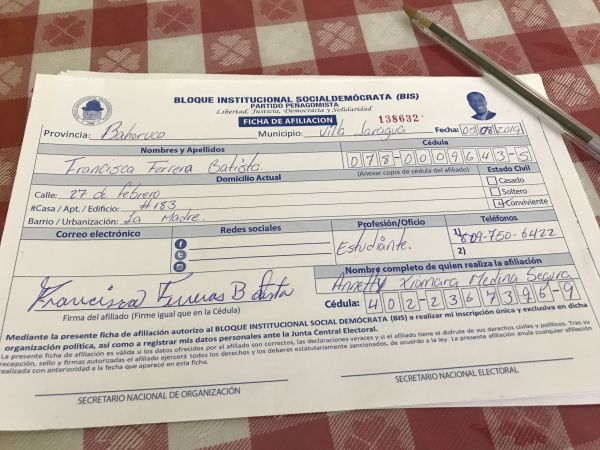 BLOQUE INSTITUCIONAL SOCIALDEMÓCRATA (BIS)
PARTIDO PEÑAGOMISTA
Libertad, Justicia, Democracia y Solidaridad
FICHA DE AFILIACIÓN 138632
Provincia: Bahoruco Municipio: Villa Jaragua Fecha: 05/08/2019
Nombres y Apellidos Cédula
Francisca Ferrera Batista 078-0009643-5
(Anexar copia de cédula del afiliado)
Domicilio Actual Estado Civil
Calle: 27 de Febrero Casado
#Casa / Apt. / Edificio: #183 Soltero
Barrio / Urbanización: La Madre Conviviente
Correo electrónico Redes sociales Profesión/Oficio Teléfonos
Estudiante. 1) 809-750-6422
2)
Nombre completo de quien realiza la afiliación
Annetty Xiomara Medina Segura
Francisca Ferreras Batista
Firma del afiliado (Firme igual que en la Cédula) Cédula: 402-2367396-9
Mediante la presente ficha de afiliación autorizo al BLOQUE INSTITUCIONAL SOCIAL DEMÓCRATA (BIS) a realizar mi inscripción única y exclusiva en dicha
organización política, así como a registrar mis datos personales ante la Junta Central Electoral.
La presente ficha de afiliación es válida si los datos ofrecidos por el afiliado son correctos, las declaraciones veraces y si el afiliado tiene el disfrute de sus derechos civiles y políticos. Tras su
recepción, sello y firmas autorizadas el afiliado ejercerá todos los derechos y los deberes estatutariamente sancionados, de acuerdo a la ley. La presente afiliación anula cualquier afiliación
realizada con anterioridad a la fecha que aparece en esta ficha.
SECRETARIO NACIONAL DE ORGANIZACIÓN
SECRETARIO NACIONAL ELECTORAL